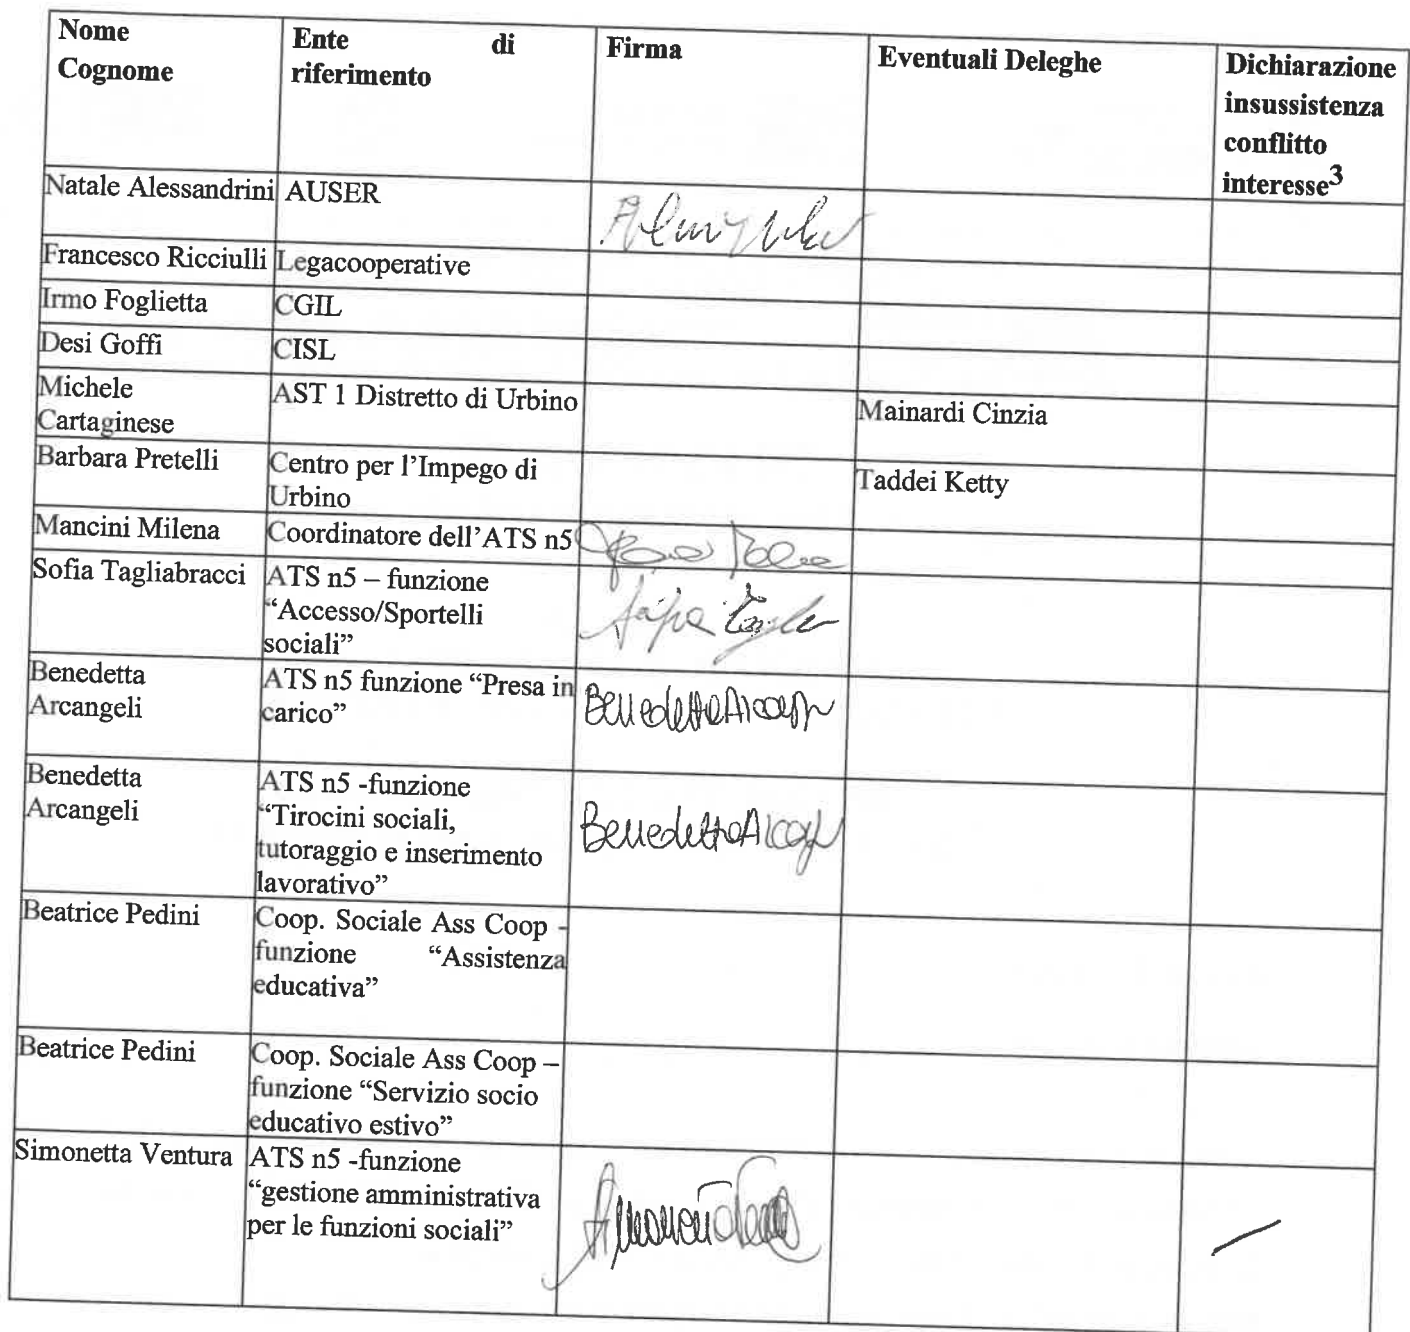 Nome
Cognome
Ente di
riferimento
Firma
Eventuali Deleghe
Dichiarazione
insussistenza
conflitto
interesse3
Natale Alessandrini
AUSER
Francesco Ricciulli
Legacooperative
Irmo Foglietta
CGIL
Desi Goffi
CISL
Michele
Cartaginese
AST 1 Distretto di Urbino
Mainardi Cinzia
Barbara Pretelli
Centro per l’Impego di
Urbino
Taddei Ketty
Mancini Milena
Coordinatore dell’ATS n5
Sofia Tagliabracci
ATS n5 – funzione
“Accesso/Sportelli
sociali”
Benedetta
Arcangeli
ATS n5 funzione “Presa in
carico”
Benedetta
Arcangeli
ATS n5 -funzione
“Tirocini sociali,
tutoraggio e inserimento
lavorativo”
Beatrice Pedini
Coop. Sociale Ass Coop -
funzione “Assistenza
educativa”
Beatrice Pedini
Coop. Sociale Ass Coop –
funzione “Servizio socio
educativo estivo”
Simonetta Ventura
ATS n5 -funzione
“gestione amministrativa
per le funzioni sociali”